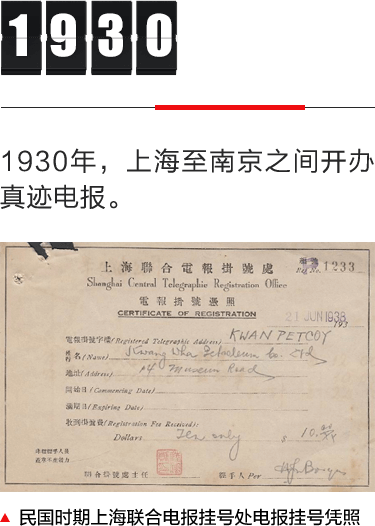 1930
1930年，上海至南京之间开办
真迹电报。
上海聯合電報掛號處
Reg. No. 1233
Shanghai Central Telegraphic Registration Office
電報掛號憑照
CERTIFICATE OF REGISTRATION
21 JUN 1938
193
電報掛號字樣/(Registered Telegraphic Address) KWAN PETCOY
姓名/(Name) Kwang Wha Petroleum Co. Ltd
地址/(Address) 14 Museum Road
開始日/(Commencing Date)
滿期日/(Expiring Date)
收到掛號費/(Registration Fee Received):
Dollars Ten only $ 10.00
聯合掛號處主任
經手人 Per
民国时期上海联合电报挂号处电报挂号凭照